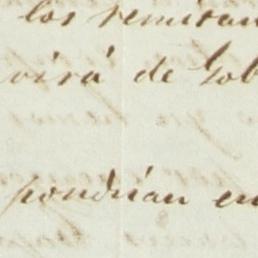 los remitan
virá de Gob
pondrian en